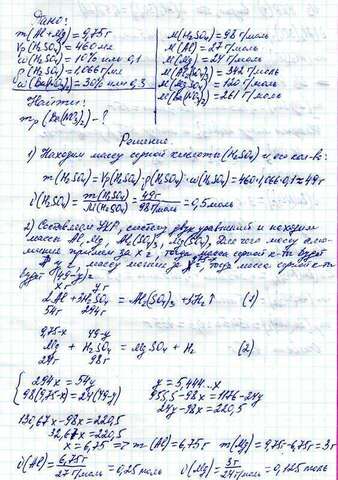 Дано:
m(Al+Mg)=9,75г
Vр(H₂SO₄)=460мл
ω(H₂SO₄)=10% или 0,1
ρ(H₂SO₄)=1,066г/мл
ω(Ba(NO₃)₂)=30% или 0,3
Найти:
mр(Ba(NO₃)₂)-?
M(H₂SO₄)=98г/моль
M(Al)=27г/моль
M(Mg)=24г/моль
M(Al₂(SO₄)₃)=342г/моль
M(MgSO₄)=120г/моль
M(Ba(NO₃)₂)=261г/моль
Решение
1) Находим массу серной кислоты (H₂SO₄) и его кол-во:
m(H₂SO₄)=Vр(H₂SO₄)·ρ(H₂SO₄)·ω(H₂SO₄)=460·1,066·0,1=49г
ν(H₂SO₄)=m(H₂SO₄)/M(H₂SO₄)=49г/98г/моль=0,5моль
2) Составляем УХР, систему двух уравнений и находим
массы Al, Mg, Al₂(SO₄)₃, MgSO₄. Для чего массу алю-
миния примем за x г, тогда масса серной к-ты будет
y г, массу магния за г, тогда масса серной к-ты
будет (49-y)г
xг yг
2Al+3H₂SO₄=Al₂(SO₄)₃+3H₂↑ (1)
54г 294г
9,75-x 49-y
Mg+H₂SO₄=MgSO₄+H₂ (2)
24г 98г
294x=54y
98(9,75-x)=24(49-y)
y=5,444...x
955,5-98x=1176-24y
24y-98x=220,5
130,67x-98x=220,5
32,67x=220,5
x=6,75 ⇒ m(Al)=6,75г m(Mg)=9,75г-6,75г=3г
ν(Al)=6,75г/27г/моль=0,25моль ν(Mg)=3г/24г/моль=0,125моль